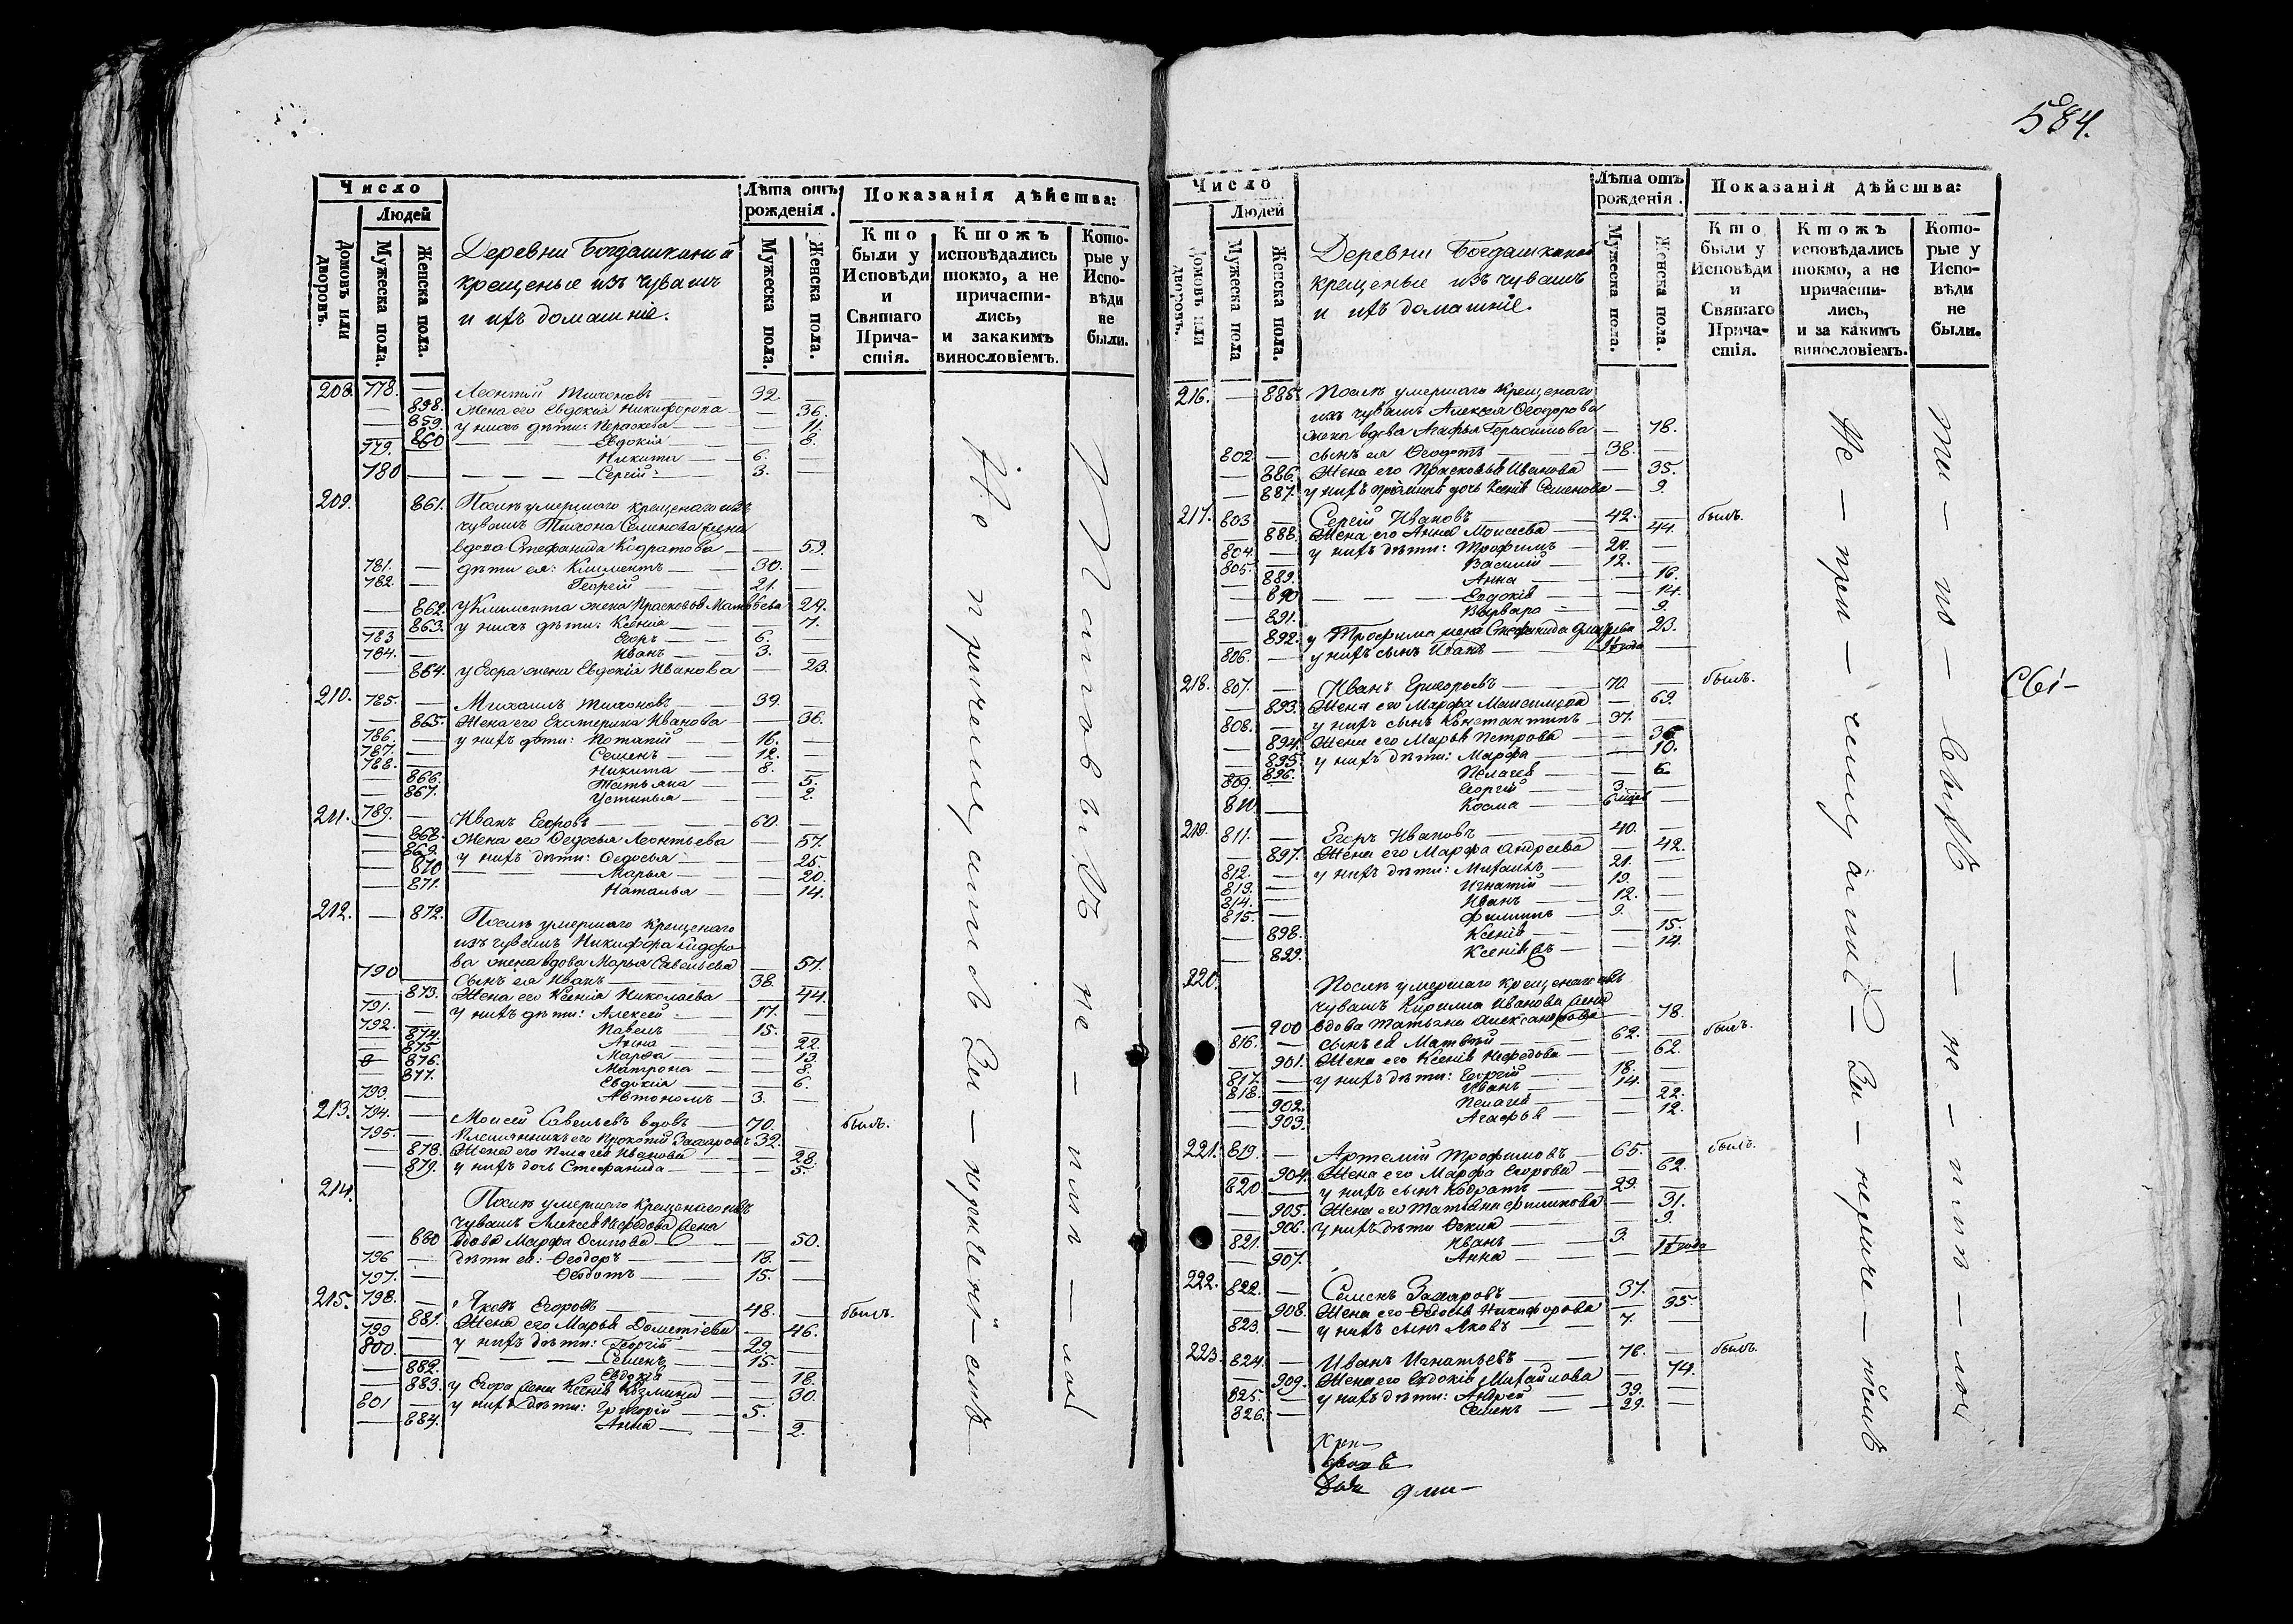 584.
Число
Людей
Домовъ или дворовъ.
Мужеска пола.
Женска пола.
Деревни Богдашкиной
крещеные изъ чувашъ
и ихъ домашніе.
Лѣта отъ рожденія.
Мужеска пола.
Женска пола.
Показанія дѣйства:
Кто были у Исповѣди и Святаго Причастія.
Ктожъ исповѣдались токмо, а не причастились, и закакимъ винословіемъ.
Которые у Исповѣди не были.
208. 778. — Леонтий Тихоновъ — 32. —
— 858. Жена его Евдокія Никифорова — — 36.
— 859. у нихъ дѣти: Параскева — — 11.
— 860 — Евдокія — — 8.
779. — Никита — 6. —
780 — — Сергій — 3. —
209. 861. Послѣ умершаго крещенаго изъ
чувашъ Тихона Семенова жена
вдова Стефанида Кодратова — — 59.
781. — дѣти ея: Климентъ — 30. —
782. — Георгій — 21.
— 862. у Климента жена Прасковья Матвѣева 29.
— 863. у нихъ дѣти: Ксенія — — 7.
783 — Егоръ — 6. —
784. — Иванъ — 3. —
— 864. у Егора жена Евдокія Иванова — 23.
210. 785. — Михаилъ Тихоновъ — 39. —
— 865. Жена его Екатерина Иванова — — 36.
786. — у нихъ дѣти: Потапій — 16. —
787. — Семенъ — 12. —
788. — Никита — 8. —
— 866. Татьяна — — 5.
— 867. Устинья — — 2.
211. 789. — Иванъ Егоровъ — 60. —
— 868. Жена его Ѳедосья Леонтьева — 57.
— 869. у нихъ дѣти: Ѳедосья — — 25.
— 870 — Марья — — 20.
— 871. Наталья — — 14.
212. — 872. Послѣ умершаго крещенаго
изъ чувашъ Никифора Сидоро-
ва жена вдова Марья Савельева — 57.
790 — Сынъ ея Иванъ — 38. —
— 873. Жена его Ксенія Николаева — — 44.
791. — у нихъ дѣти: Алексей — 17. —
792. — Павелъ — 15. —
— 874. Анна — — 22.
— 875 Марѳа — — 13.
— 876. Матрона — — 8.
— 877. Евдокія — — 6.
793. — Автономъ — 3. —
213. 794. — Моисей Савельевъ вдовъ — 70. былъ.
795. — Племянникъ его Прокопій Захаровъ 32. —
— 878. Жена его Пелагея Иванова — — 28.
— 879. у нихъ дочь Стефанида — — 5.
214. Послѣ умершаго крещенаго изъ
чувашъ Алексея Нефедова жена
— 880 вдова Марѳа Осипова — — 50.
796 — дѣти ея: Ѳеодоръ — 18. —
797. — Ѳеодотъ — 15. —
215. 798. — Яковъ Егоровъ — 48. — былъ.
— 881. Жена его Марья Дометіева — 46.
799 — у нихъ дѣти: Георгій — 29. —
800. — — Семенъ — 15. —
— 882. Евдокія — — 18.
— 883. у Егора жена Ксенія Козмина — 30.
801 — у нихъ дѣти: Григорій — 5. —
— 884. Анна — — 2.
Число
Людей
Домовъ или дворовъ.
Мужеска пола
Женска пола.
Деревни Богдашкиной
крещеные изъ чувашъ
и ихъ домашніе.
Лѣта отъ рожденія.
Мужеска пола.
Женска пола.
Показанія дѣйства:
Кто были у Исповѣди и Святаго Причастія.
Ктожъ исповѣдались токмо, а не причастились, и за какимъ винословіемъ.
Которые у Исповѣди не были.
216. — 885. Послѣ умершаго крещенаго
изъ чувашъ Алексея Ѳеодорова
жена вдова Агафья Герасимова — 78.
802 — сынъ ея Ѳеодотъ — 38. —
— 886. Жена его Прасковья Иванова — 35.
— 887. у нихъ дочь Ксенія Семенова — 9.
217. 803 — Сергій Ивановъ — 42. — былъ.
— 888. Жена его Анна Моисеева — 44.
804. — у нихъ дѣти: Трофимъ — 20. —
805. — Василій — 12. —
— 889. Анна — — 16.
— 890 — Евдокія — — 14.
— 891. Варвара — — 9.
— 892. у Трофима жена Стефанида — 23.
806. — у нихъ сынъ Иванъ — года —
218. 807. — Иванъ Григорьевъ — 70. — былъ.
— 893. Жена его Марѳа Максимова — 69.
808. — у нихъ сынъ Константинъ — 37. —
— 894. Жена его Марья Петрова — — 36
— 895. у нихъ дѣти: Марѳа — — 10.
— 896. Пелагея — — 6
809. — Георгій — 3. —
810 — Косма — —
219. 811. — Егоръ Ивановъ — 40. —
— 897. Жена его Марѳа Андреева — 42.
812. — у нихъ дѣти: Михаилъ — 21. —
813. — Игнатій — 19. —
814. — Иванъ — 12. —
815 — Филиппъ — 9. —
— 898. Ксенія — — 15.
— 899. Ксенія — — 14.
220. Послѣ умершаго крещенаго изъ
чувашъ Кирилла Иванова жена
— 900 вдова Татьяна Александрова — 78.
816. — сынъ ея Матвѣй — 62. — былъ.
— 901. Жена его Ксенія Нефедова — 62.
817. — у нихъ дѣти: Георгій — 18. —
818. — Иванъ — 14. —
— 902. Пелагея — — 22.
— 903. Агафья — — 12.
221. 819. — Артемій Трофимовъ — 65. — былъ.
— 904. Жена его Марѳа Егорова — 62.
820 — у нихъ сынъ Кодратъ — 29. —
— 905. Жена его Татьяна — 31.
— 906. у нихъ дѣти — 9.
821. — Иванъ — 3. —
— 907. Анна — года
222. 822. — Семенъ Захаровъ — 37. —
— 908. Жена его Ѳедосья Никифорова — 35.
823. — у нихъ сынъ Яковъ — 7. —
223 824. — Иванъ Игнатьевъ — 76. — былъ.
— 909. Жена его Евдокія Михайлова — 74.
825. — у нихъ дѣти: Андрей — 39. —
826. — Семенъ — 29. —